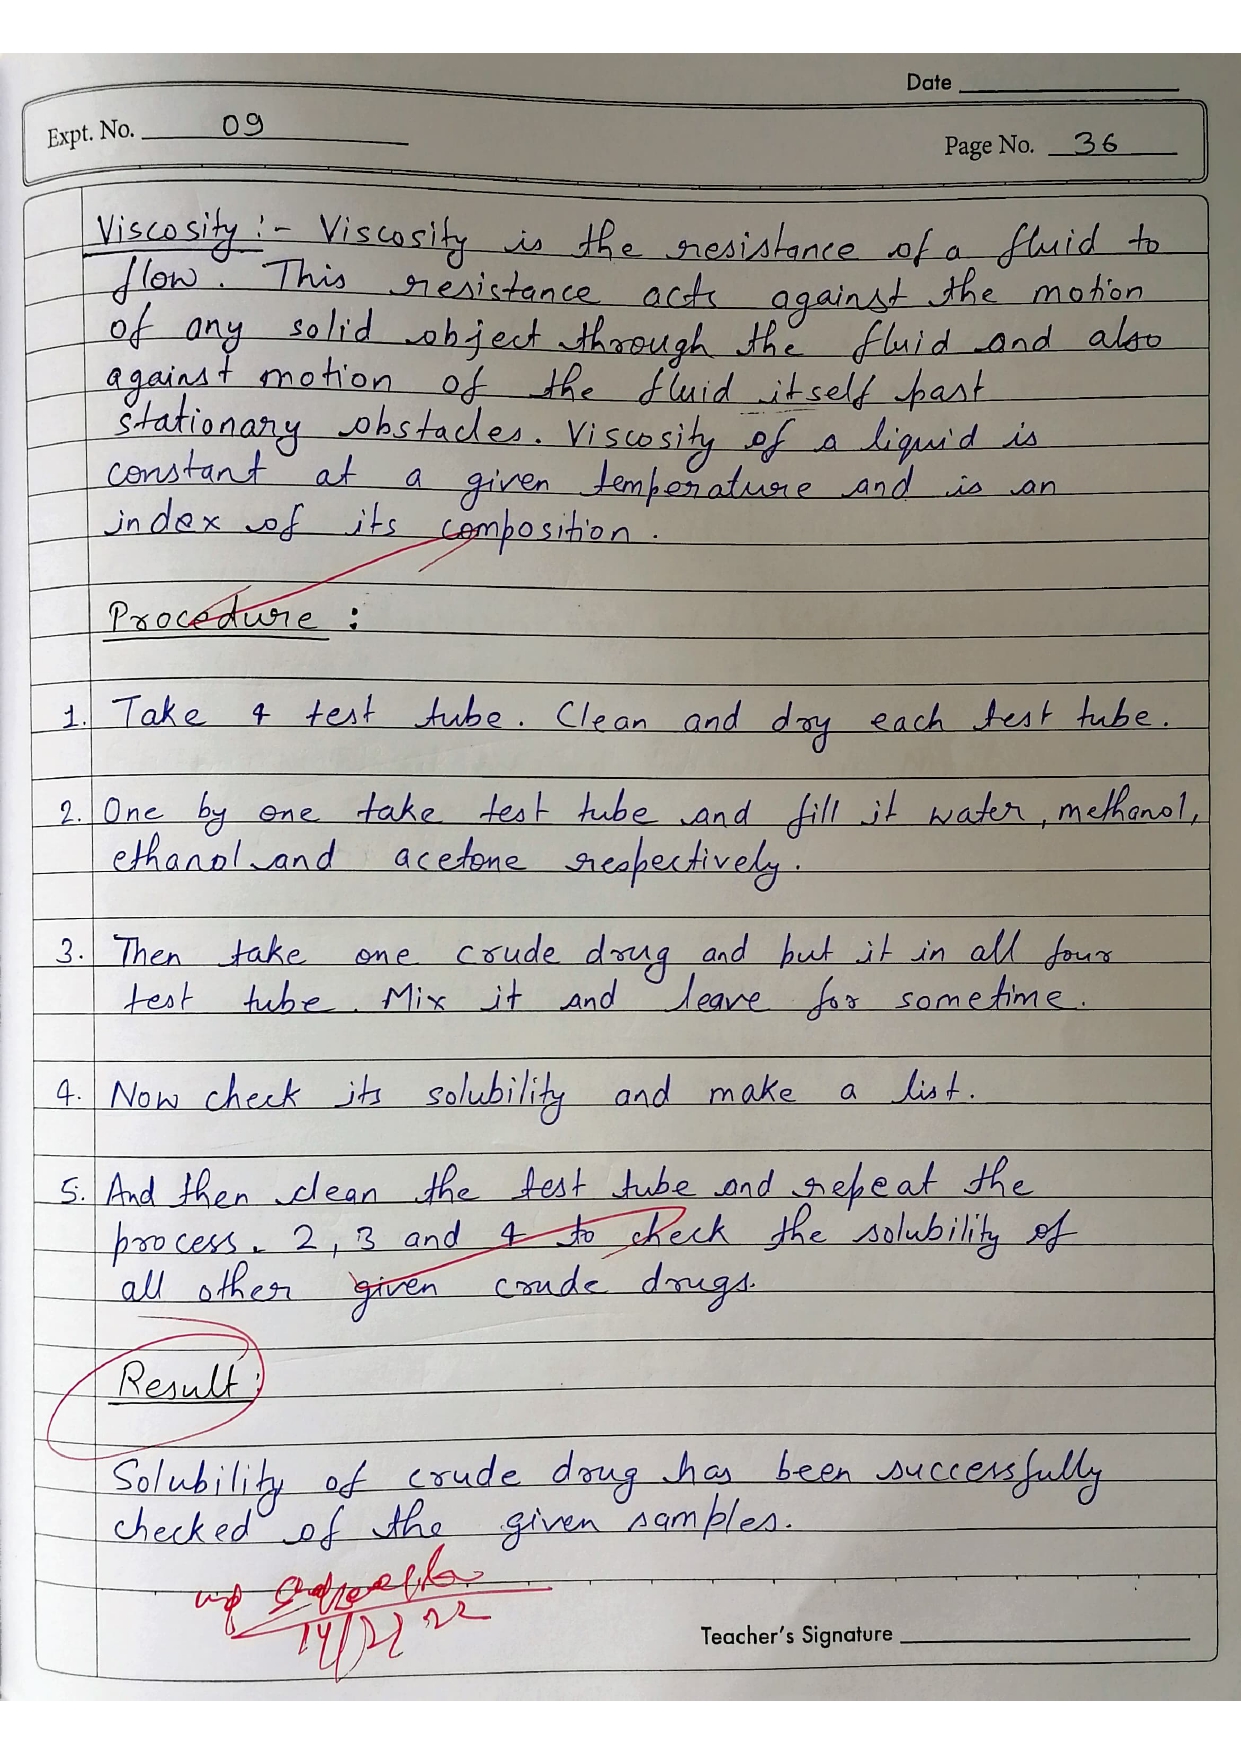 Date
Expt. No. 09
Page No. 36
Viscosity :- Viscosity is the resistance of a fluid to
flow. This resistance acts against the motion
of any solid object through the fluid and also
against motion of the fluid itself past
stationary obstacles. Viscosity of a liquid is
constant at a given temperature and is an
index of its composition.
Procedure :
1. Take 4 test tube. Clean and dry each test tube.
2. One by one take test tube and fill it water, methanol,
ethanol and acetone respectively.
3. Then take one crude drug and but it in all four
test tube. Mix it and leave for sometime.
4. Now check its solubility and make a list.
5. And then clean the test tube and repeat the
process. 2, 3 and 4 to check the solubility of
all other given crude drugs.
Result :
Solubility of crude drug has been successfully
checked of the given samples.
Teacher's Signature